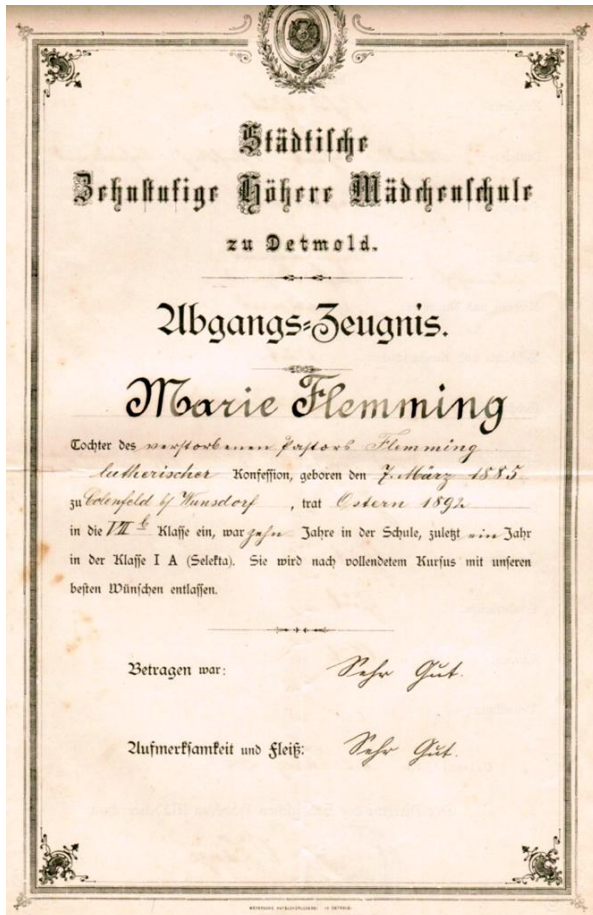 Städtische
Zehnstufige Höhere Mädchenschule
zu Detmold.
Abgangs-Zeugnis.
Marie Flemming
Tochter des verstorbenen Pastors Flemming
lutherischer Konfession, geboren den 7. März 1885
zu Colenfeld b/ Wunsdorf, trat Ostern 1892
in die VII b Klasse ein, war zehn Jahre in der Schule, zuletzt ein Jahr
in der Klasse I A (Selekta). Sie wird nach vollendetem Kursus mit unseren
besten Wünschen entlassen.
Betragen war: Sehr Gut.
Aufmerksamkeit und Fleiß: Sehr Gut.